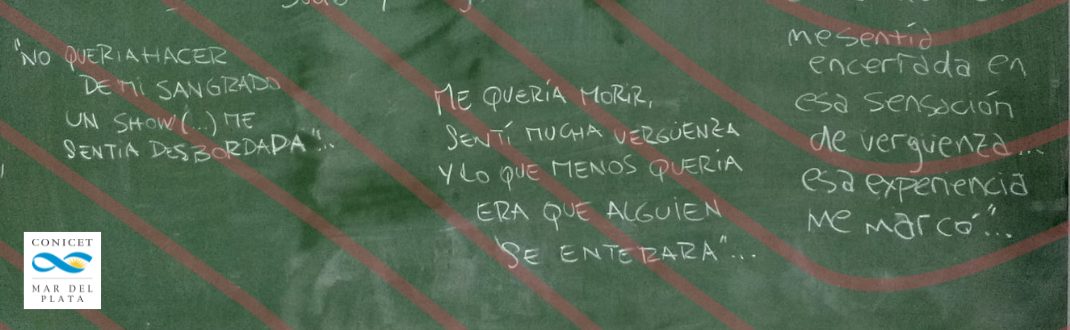 "NO QUERIA HACER
DE MI SANGRADO
UN SHOW (...) ME
SENTIA DESBORDADA"...
ME QUERÍA MORIR,
SENTÍ MUCHA VERGÜENZA
Y LO QUE MENOS QUERIA
ERA QUE ALGUIEN
SE ENTERARA"...
me sentía
encerrada en
esa sensación
de vergüenza...
esa experiencia
me marcó"...
CONICET
MAR DEL
PLATA